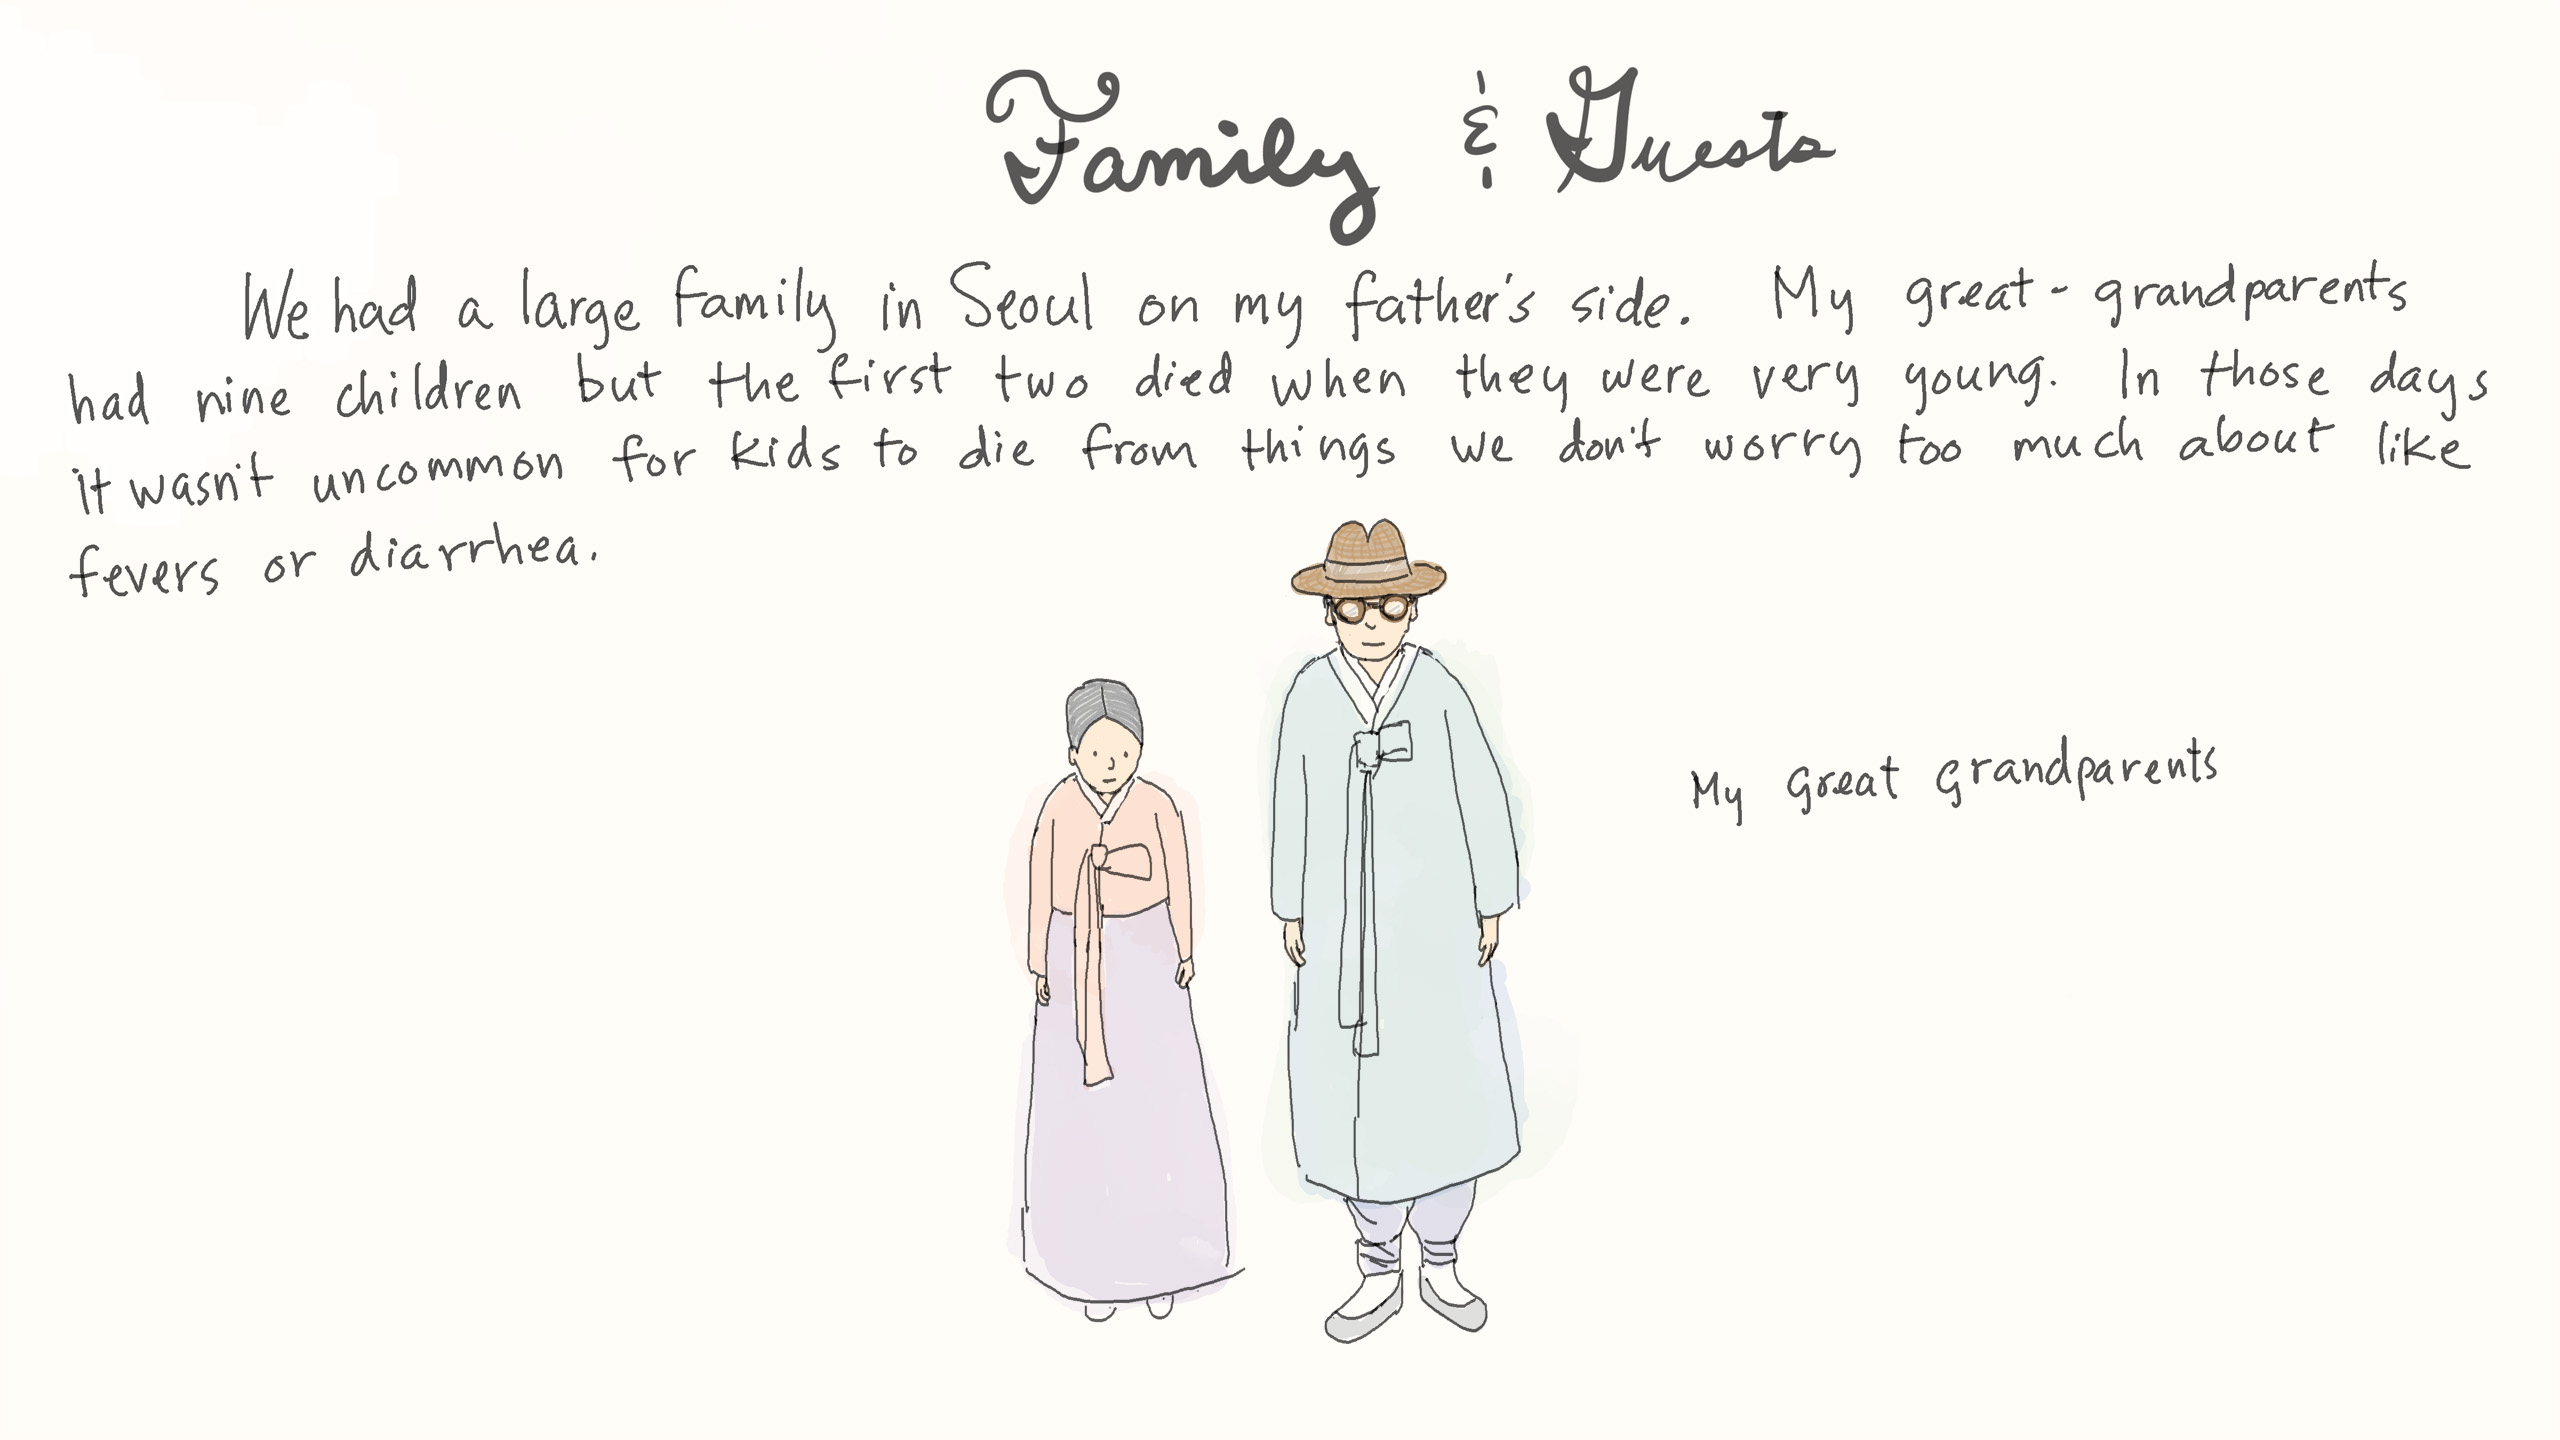 Family & Guests
We had a large family in Seoul on my father's side. My great-grandparents
had nine children but the first two died when they were very young. In those days
it wasn't uncommon for kids to die from things we don't worry too much about like
fevers or diarrhea.
My Great Grandparents